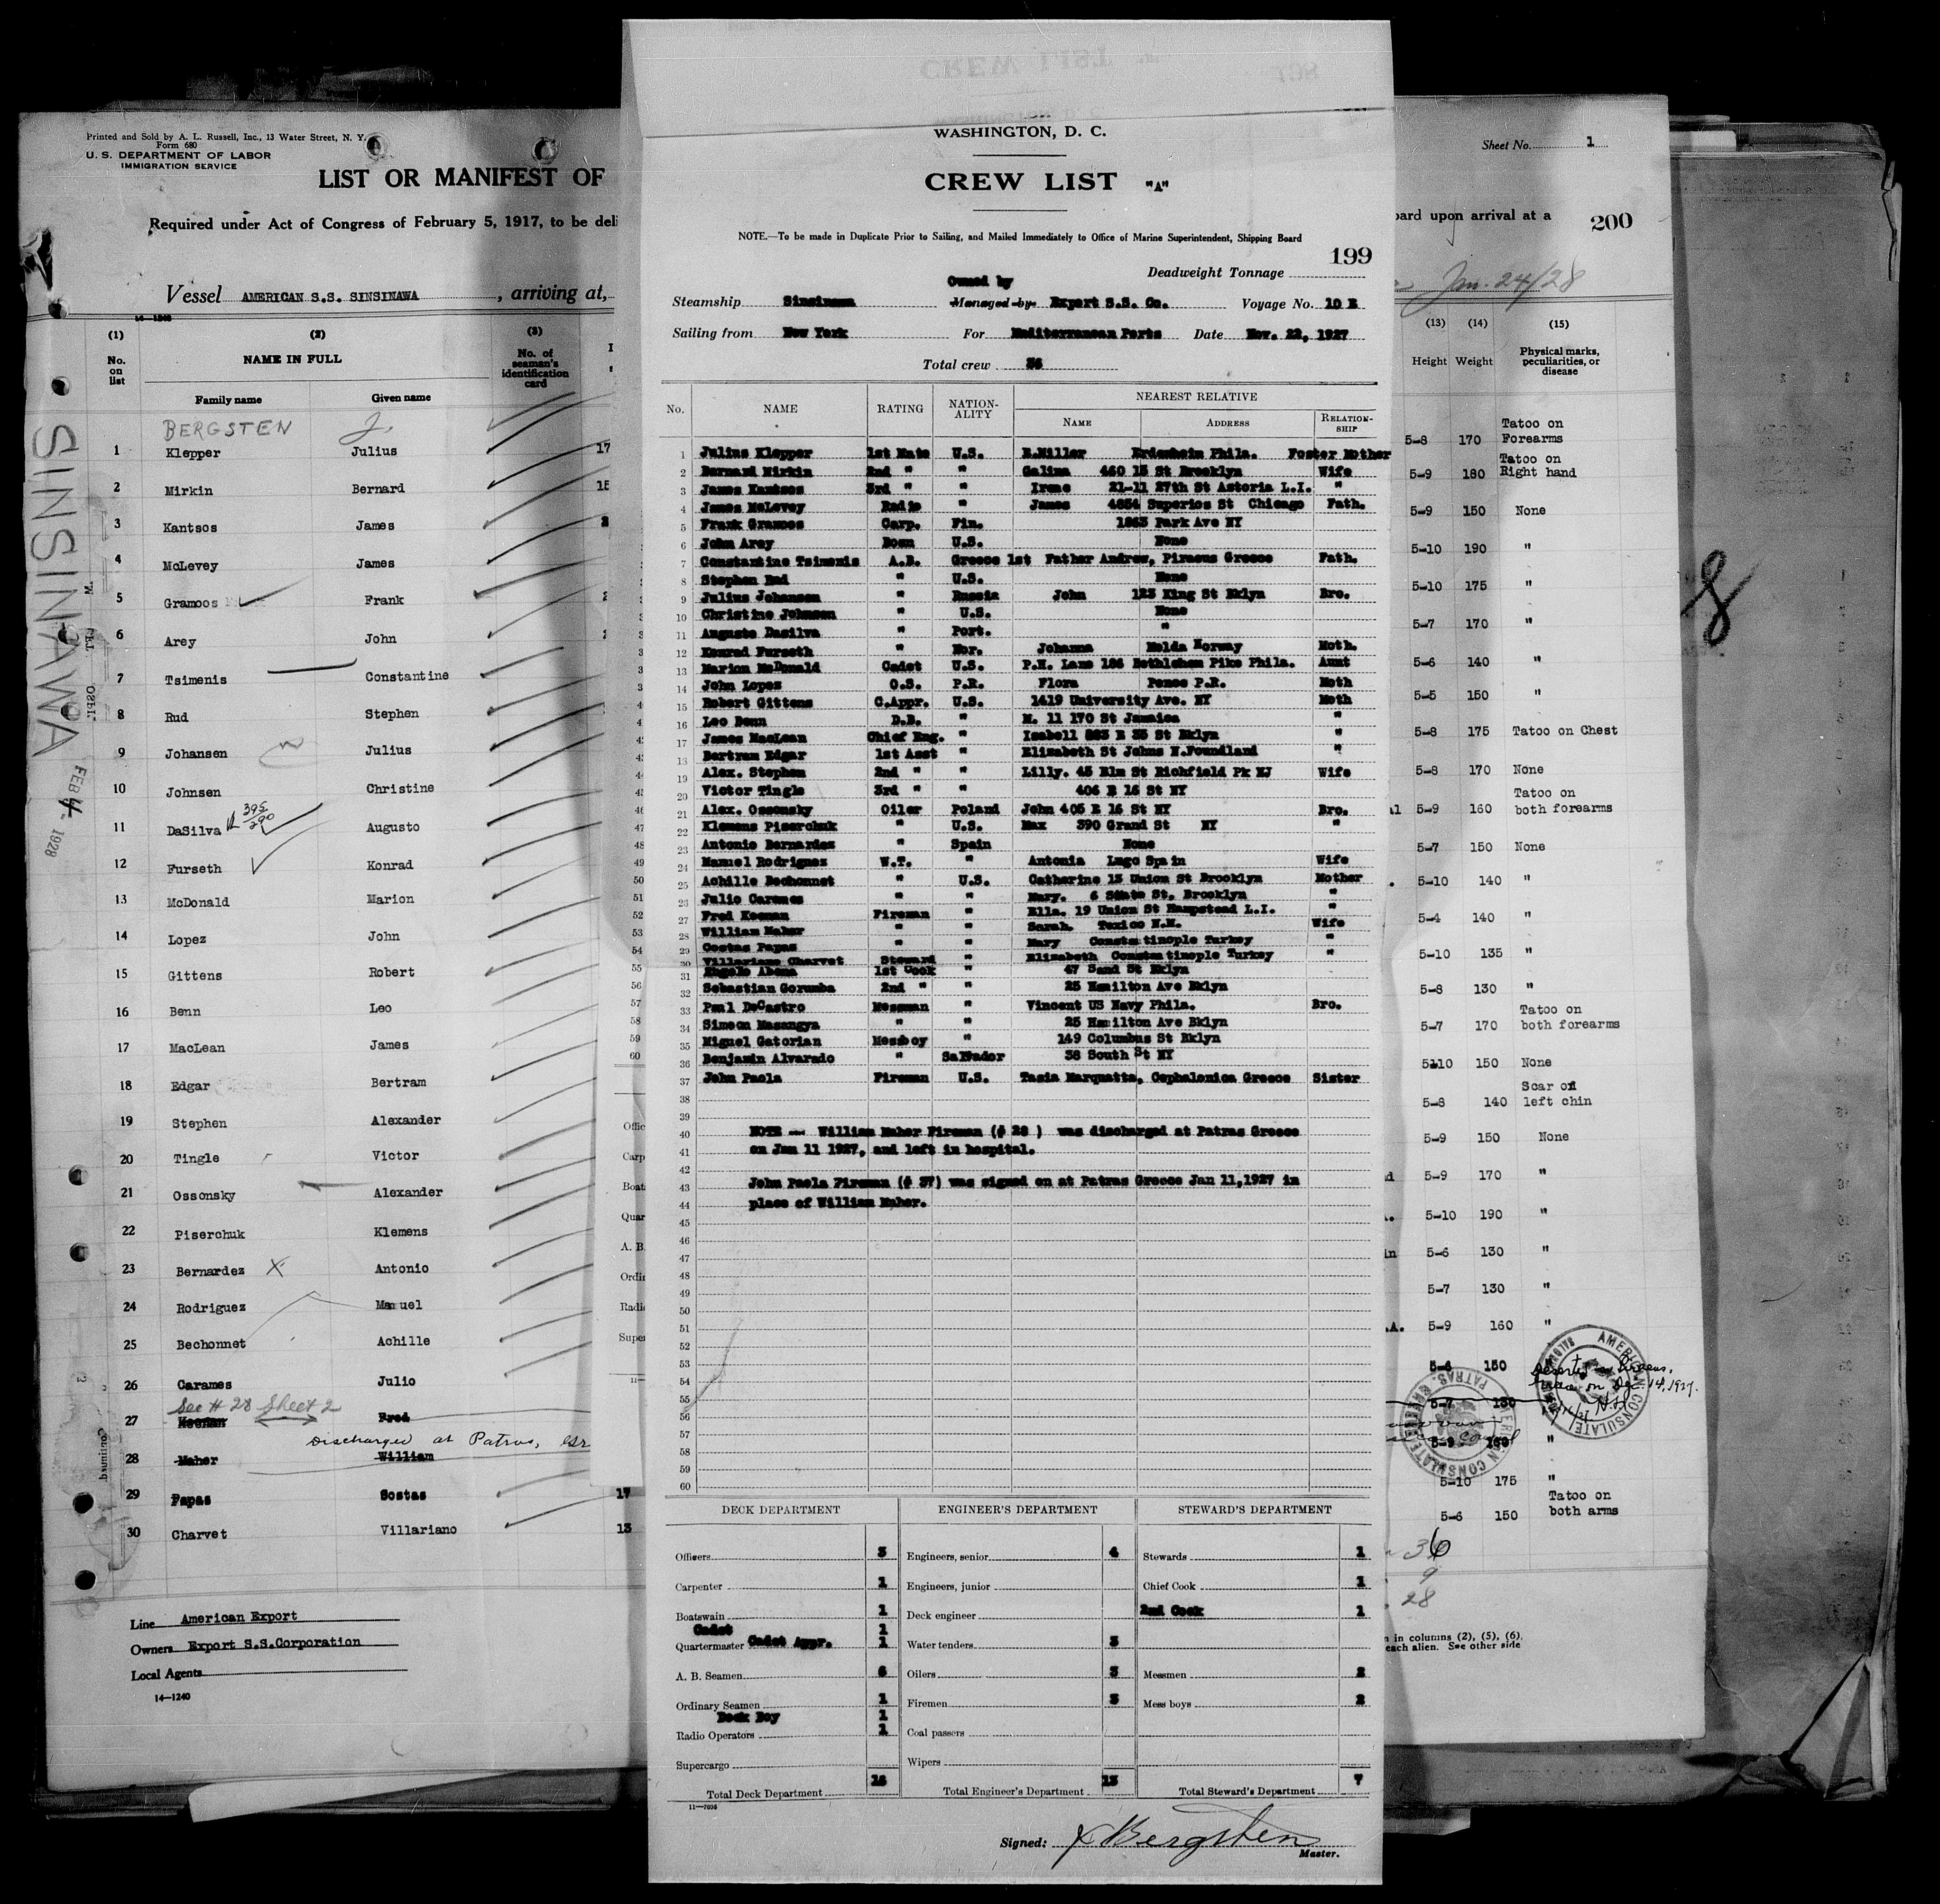 Printed and Sold by A. L. Russell, Inc., 13 Water Street, N. Y.
Form 680
U. S. DEPARTMENT OF LABOR
IMMIGRATION SERVICE
LIST OR MANIFEST OF
Required under Act of Congress of February 5, 1917, to be deli
Vessel AMERICAN S.S. SINSINAWA , arriving at,
(1) (2) (3)
No. on list NAME IN FULL No. of seaman's identification card
Family name Given name
BERGSTEN J.
1 Klepper Julius 17
2 Mirkin Bernard 15
3 Kantsos James
4 McLevey James
5 Gramoos Frank
6 Arey John
7 Tsimenis Constantine
8 Rud Stephen
9 Johansen Julius
10 Johnsen Christine
11 DaSilva 395/290 Augusto
12 Furseth Konrad
13 McDonald Marion
14 Lopez John
15 Gittens Robert
16 Benn Leo
17 MacLean James
18 Edgar Bertram
19 Stephen Alexander
20 Tingle Victor
21 Ossonsky Alexander
22 Piserchuk Klemens
23 Bernardez X Antonio
24 Rodriguez Manuel
25 Bechonnet Achille
26 Carames Julio
See # 28 Sheet 2
27 Keenan Fred
Discharged at Patras, Gr
28 Maher William
29 Papas Sostas 17
30 Charvet Villariano 13
Line American Export
Owners Export S.S.Corporation
Local Agents
14—1240
SINSINAWA
FEB 4 1928
WASHINGTON, D. C.
CREW LIST "A"
NOTE.—To be made in Duplicate Prior to Sailing, and Mailed Immediately to Office of Marine Superintendent, Shipping Board
199
Deadweight Tonnage
Owned by
Steamship Sinsinawa Managed by Export S.S. Co. Voyage No. 10 E
Sailing from New York For Mediterranean Ports Date Nov. 22, 1927
Total crew 36
No. NAME RATING NATIONALITY NEAREST RELATIVE
NAME ADDRESS RELATIONSHIP
1 Julius Klepper 1st Mate U.S. R.Miller Erdenheim Phila. Foster Mother
2 Bernard Mirkin 2nd " " Galina 460 15 St Brooklyn Wife
3 James Kantsos 3rd " " Irene 21-11 27th St Astoria L.I. "
4 James McLevey Radio " James 4654 Superior St Chicago Fath.
5 Frank Gramoos Carp. Fin. 1863 Park Ave NY
6 John Arey Bosn U.S. None
7 Constantine Tsimenis A.B. Greece 1st Father Andrew, Piraeus Greece Fath.
8 Stephen Rud " U.S. None
9 Julius Johansen " Russia John 123 King St Bklyn Bro.
10 Christine Johnsen " U.S. None
11 Auguste Dasilva " Port. "
12 Konrad Furseth " Nor. Johanna Molda Norway Moth.
13 Marion McDonald Cadet U.S. P.H. Lane 186 Bethlehem Pike Phila. Aunt
14 John Lopez O.S. P.R. Flora Ponce P.R. Moth
15 Robert Gittens C.Appr. U.S. 1419 University Ave. NY Moth
16 Leo Benn D.B. " M. 11 170 St Jamaica "
17 James MacLean Chief Eng. " Isabell 883 E 35 St Bklyn "
18 Bertram Edgar 1st Asst " Elizabeth St Johns N.Foundland "
19 Alex. Stephen 2nd " " Lilly. 45 Elm St Richfield Pk NJ Wife
20 Victor Tingle 3rd " " 406 E 16 St NY
21 Alex. Ossonsky Oiler Poland John 405 E 16 St NY Bro.
22 Klemens Piserchuk " U.S. Max 390 Grand St NY "
23 Antonio Bernardez " Spain None
24 Manuel Rodriguez W.T. " Antonia Lugo Spain Wife
25 Achille Bechonnet " U.S. Catherine 13 Union St Brooklyn Mother
26 Julio Carames " " Mary. 6 State St. Brooklyn "
27 Fred Keenan Fireman " Ella. 19 Union St Hampstead L.I. "
28 William Maher " " Sarah. Texico N.M. Wife
29 Costas Papas " " Mary Constantinople Turkey "
30 Villariano Charvet Steward " Elizabeth Constantinople Turkey "
31 Engelo Abena 1st Cook " 47 Sand St Bklyn
32 Sebastian Gorumba 2nd " " 25 Hamilton Ave Bklyn
33 Paul DeCastro Messman " Vincent US Navy Phila. Bro.
34 Simeon Masangya " " 25 Hamilton Ave Bklyn
35 Miguel Gatorian Messboy " 149 Columbus St Bklyn
36 Benjamin Alvarado " Salvador 38 South St NY
37 John Paola Fireman U.S. Tasia Marquatta, Cephalonica Greece Sister
38
39
40 NOTE -- William Maher Fireman (# 28 ) was discharged at Patras Greece
41 on Jan 11 1927, and left in hospital.
42
43 John Paola Fireman (# 37) was signed on at Patras Greece Jan 11,1927 in
44 place of William Maher.
45
46
47
48
49
50
51
52
53
54
55
56
57
58
59
60
DECK DEPARTMENT ENGINEER'S DEPARTMENT STEWARD'S DEPARTMENT
Officers 3 Engineers, senior 4 Stewards 1
Carpenter 1 Engineers, junior Chief Cook 1
Boatswain 1 Deck engineer 2nd Cook 1
Cadet 1
Quartermaster Cadet Appr. 1 Water tenders 3
A. B. Seamen 6 Oilers 3 Messmen 2
Ordinary Seamen 1 Firemen 3 Mess boys 2
Deck Boy 1
Radio Operators 1 Coal passers
Supercargo Wipers
Total Deck Department 16 Total Engineer's Department 13 Total Steward's Department 7
11—7098
Signed: J Bergsten
Master.
Sheet No. 1
oard upon arrival at a
200
Jan. 24/28
(13) (14) (15)
Height Weight Physical marks, peculiarities, or disease
5-8 170 Tatoo on Forearms
5-9 180 Tatoo on Right hand
5-9 150 None
5-10 190 "
5-10 175 "
5-7 170 "
5-6 140 "
5-5 150 "
5-8 175 Tatoo on Chest
5-8 170 None
5-9 160 Tatoo on both forearms
5-7 150 None
5-10 140 "
5-4 140 "
5-10 135 "
5-8 130 "
5-7 170 Tatoo on both forearms
5-10 150 None
5-8 140 Scar on left chin
5-9 150 None
5-9 170 "
5-10 190 "
5-6 130 "
5-7 130 "
5-9 160 "
5-6 150
Deserted at Piraeus,
Greece on Dec. 14, 1927.
5-7 130
AMERICAN CONSULATE
PATRAS, GREECE
5-9 "
5-10 175 "
5-6 150 Tatoo on both arms
36
9
28
n in columns (2), (5), (6)
each alien. See other side
8